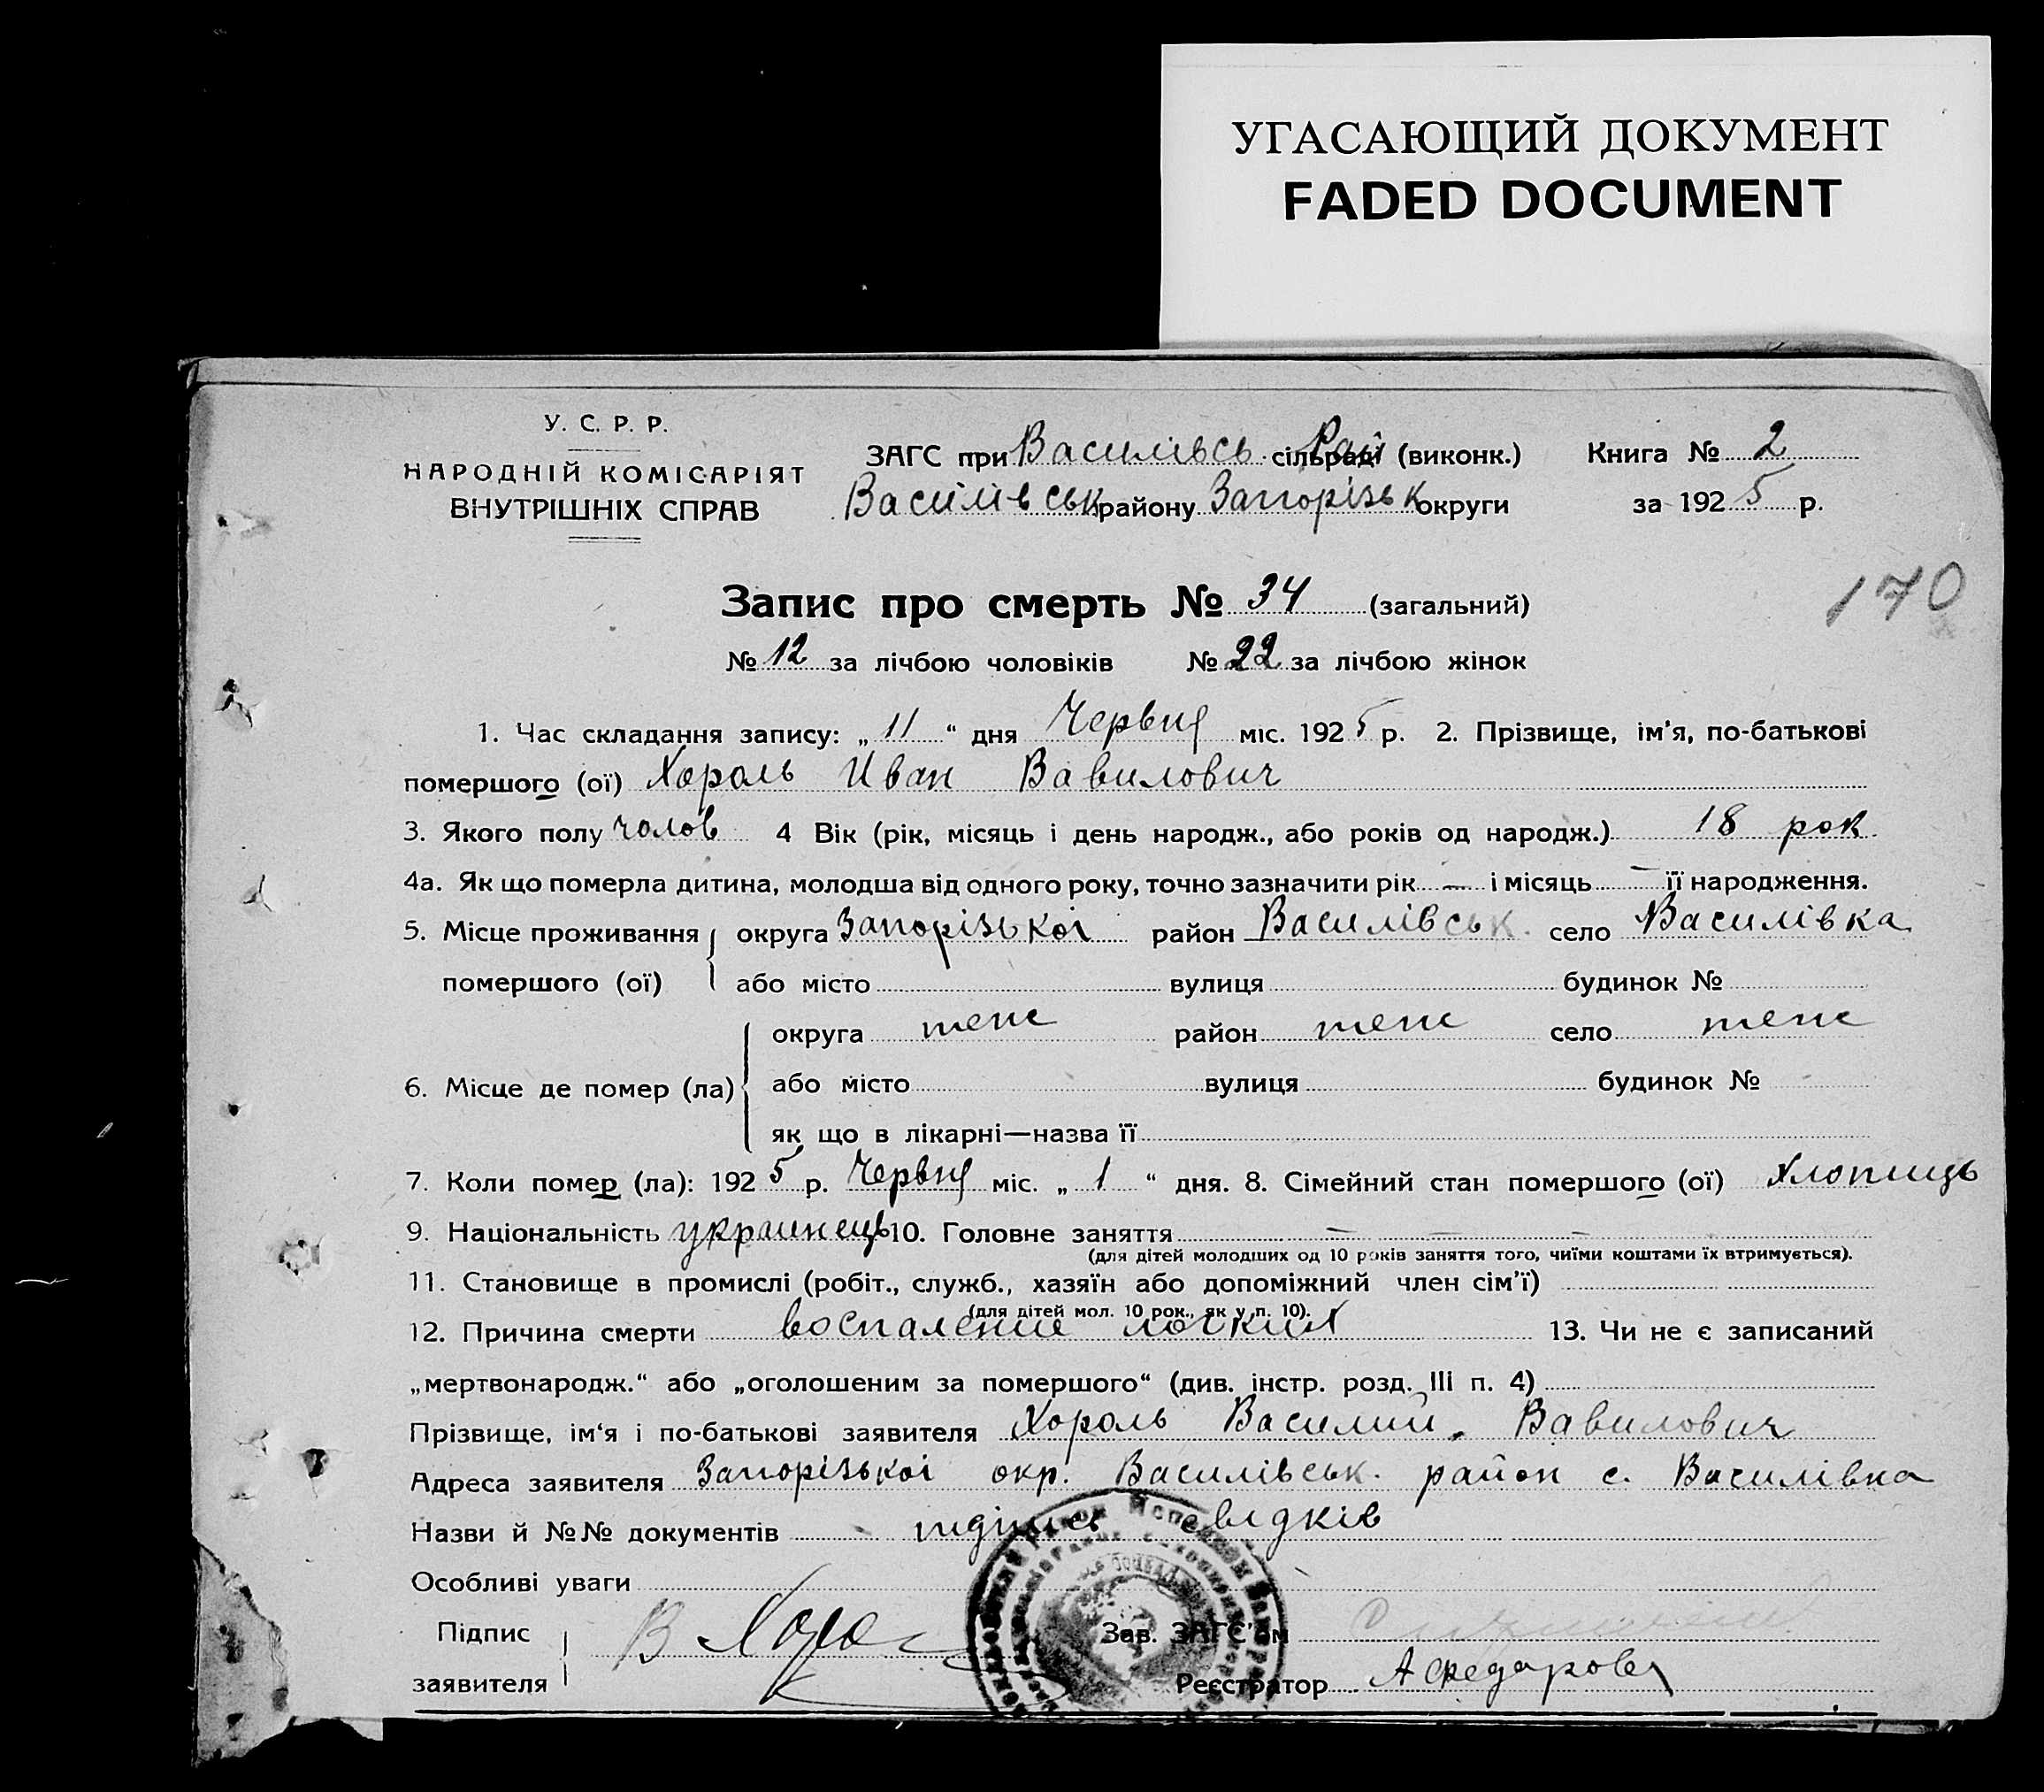 УГАСАЮЩИЙ ДОКУМЕНТ
FADED DOCUMENT
У. С. Р. Р.
НАРОДНІЙ КОМІСАРІЯТ
ВНУТРІШНІХ СПРАВ
ЗАГС при Василівсь. сільраді Рай (виконк.) Книга № 2
Василівськ району Запорізьк округи за 1925 р.
170
Запис про смерть № 34 (загальний)
№ 12 за лічбою чоловіків № 22 за лічбою жінок
1. Час складання запису: „11“ дня Червня міс. 1925 р. 2. Прізвище, ім'я, по-батькові
помершого (ої) Хороль Иван Вавилович
3. Якого полу чолов 4 Вік (рік, місяць і день народж., або років од народж.) 18 рок.
4а. Як що померла дитина, молодша від одного року, точно зазначити рік — і місяць — її народження.
5. Місце проживання округа Запорізької район Василівськ. село Василівка
помершого (ої) або місто вулиця будинок №
округа теж район теж село теж
6. Місце де помер (ла) або місто вулиця будинок №
як що в лікарні—назва її
7. Коли помер (ла): 1925 р. Червня міс. „1“ дня. 8. Сімейний стан помершого (ої) Хлопиць
9. Національність украинець 10. Головне заняття — — —
(для дітей молодших од 10 років заняття того, чиїми коштами їх втримується).
11. Становище в промислі (робіт., служб., хазяїн або допоміжний член сім'ї)
(для дітей мол. 10 рок., як у п. 10).
12. Причина смерти воспаление лёгких 13. Чи не є записаний
„мертвонародж.“ або „оголошеним за помершого“ (див. інстр. розд. III п. 4)
Прізвище, ім'я і по-батькові заявителя Хороль Василий Вавилович
Адреса заявителя Запорізької окр. Василівськ. район с. Василівка
Назви й №№ документів підпись свідків
Особливі уваги
Підпис
заявителя В Хороль
Зав. ЗАГС'ом
Реєстратор А Федорова